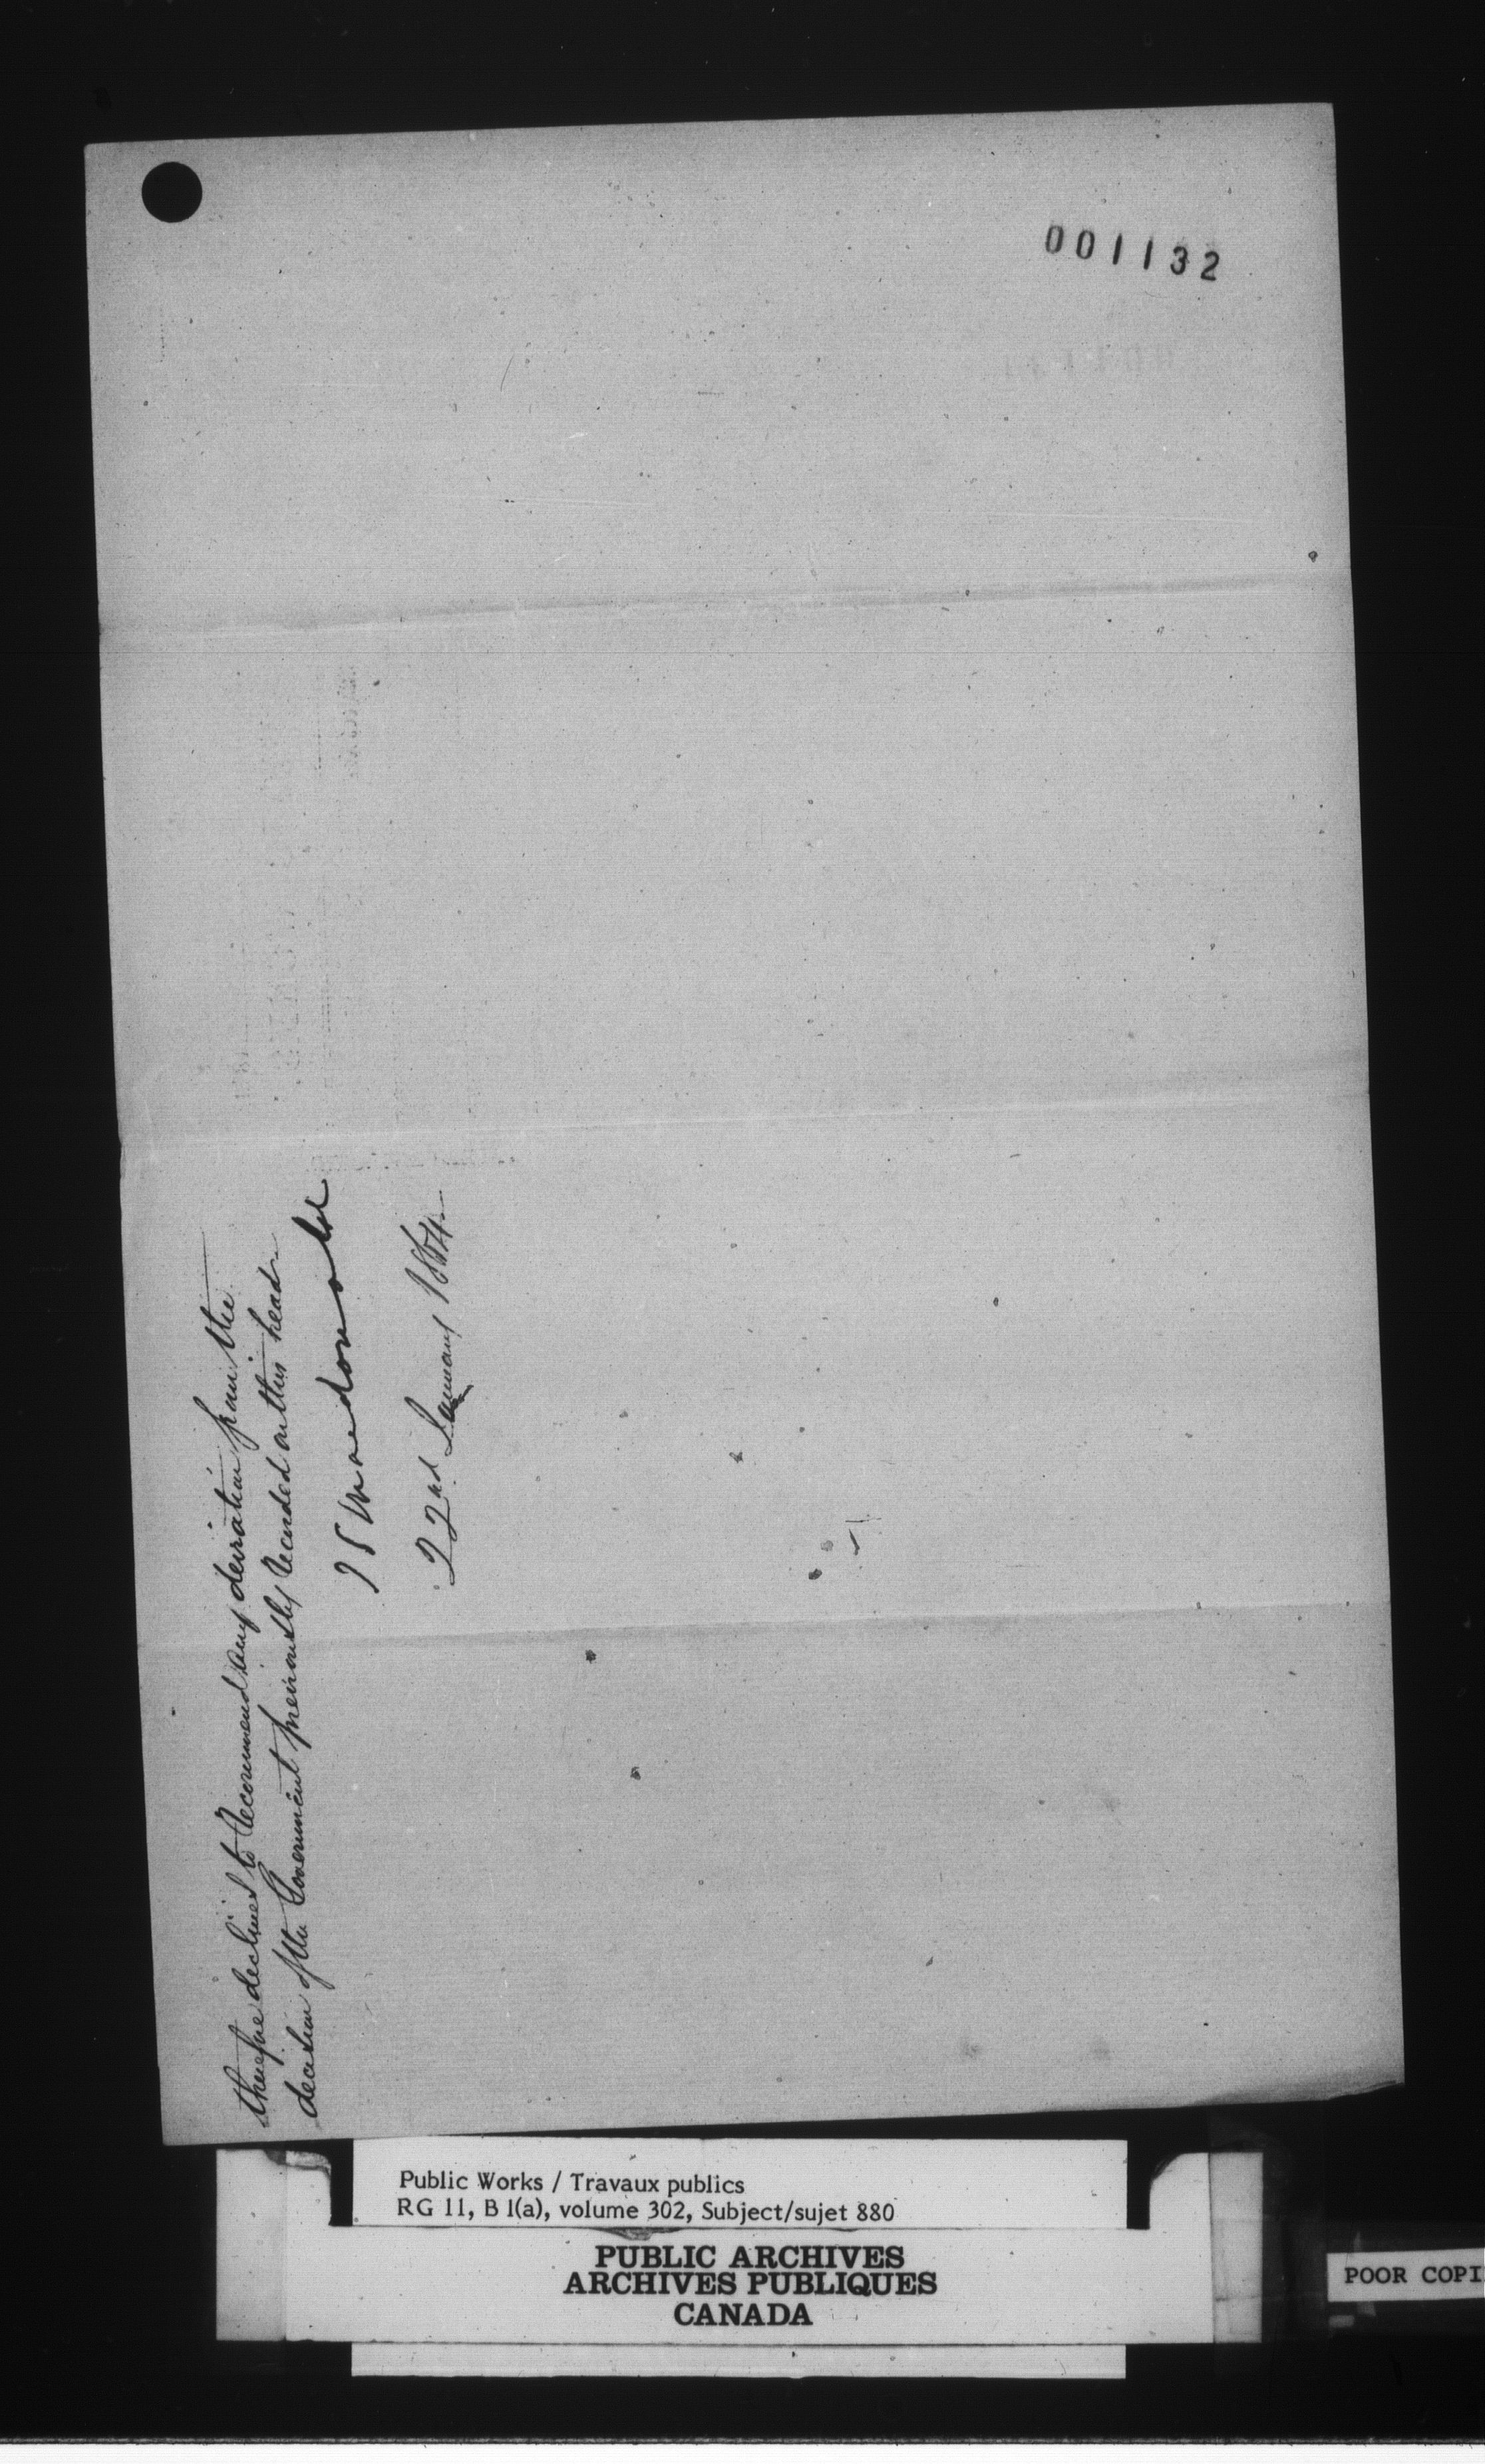 001132
therefore declines to recommend any deviation from the
decision of the Government previously recorded on this head
J S Macdonald
22nd January 1864
Public Works / Travaux publics
RG 11, B 1(a), volume 302, Subject/sujet 880
PUBLIC ARCHIVES
ARCHIVES PUBLIQUES
CANADA
POOR COPI